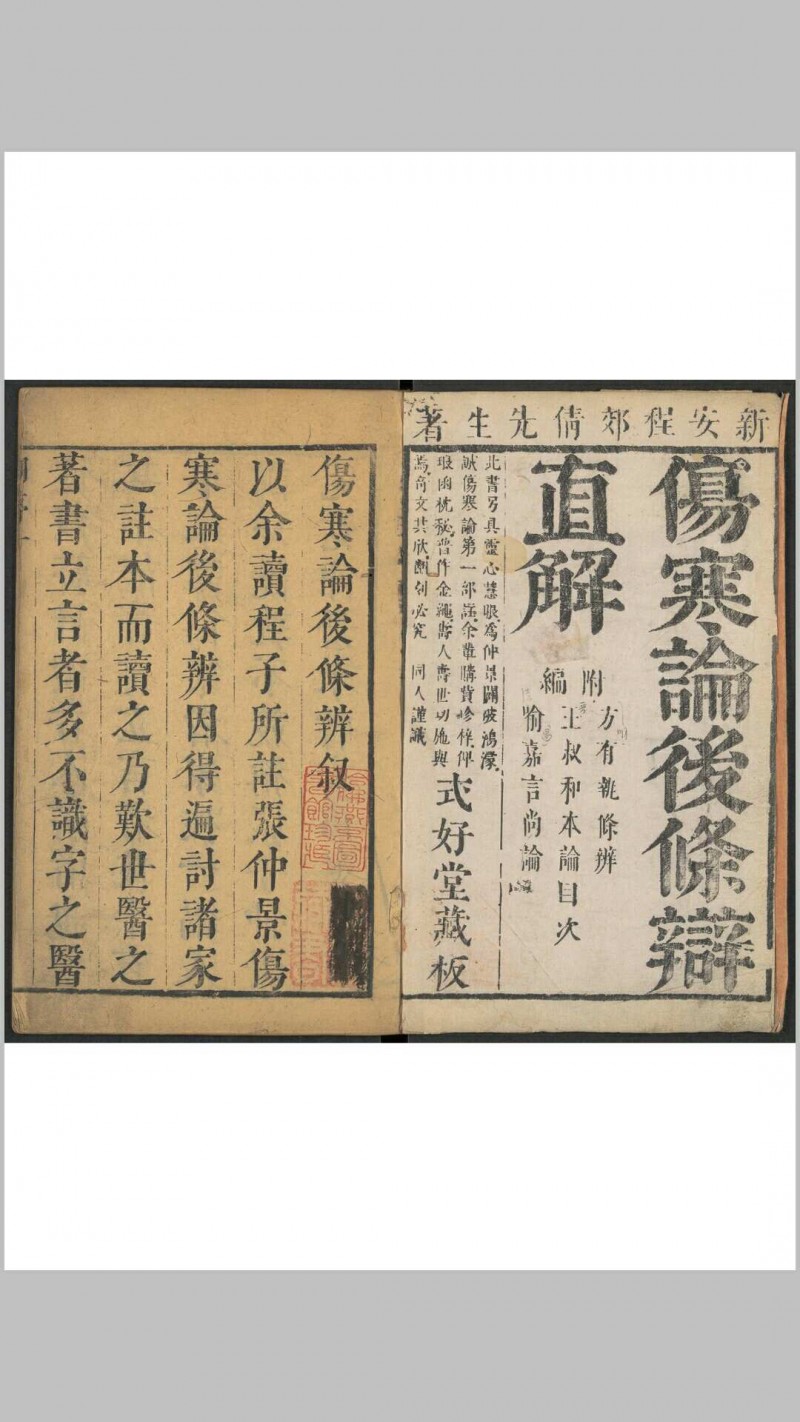 新安程郊倩先生著
傷寒論後條辯
直解
附
編
方有執條辨
王叔和本論目次
喻嘉言尚論
此書另具靈心慧眼為仲景闢破鴻濛
誠傷寒論第一部
壽人壽世切
奇文共欣
翻刻必究 同人謹識
式好堂藏板
傷寒論後條辨叙
以余讀程子所註張仲景傷
寒論後條辨因得遍討諸家
之註本而讀之乃歎世醫之
著書立言者多不識字之醫